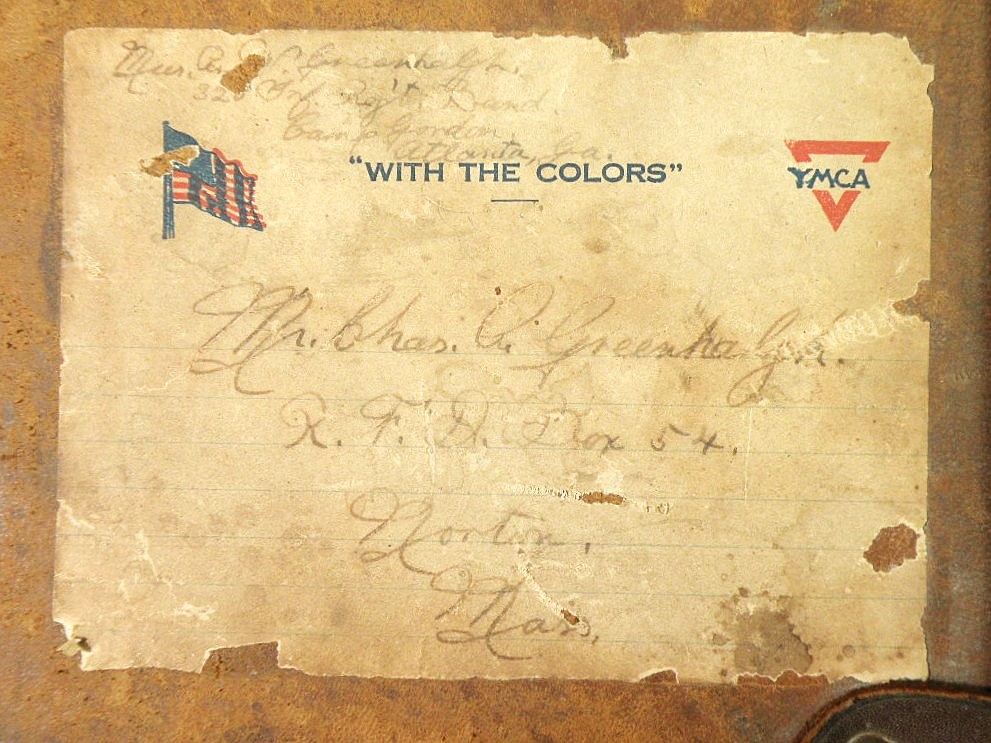 Mus. A. W. Greenhalgh.
325 Inf. Rgt. Band
Camp Gordon,
Atlanta, Ga.
"WITH THE COLORS"
YMCA
Mr. Chas. A. Greenhalgh.
R. F. D. Box 54.
Norton,
Mass.